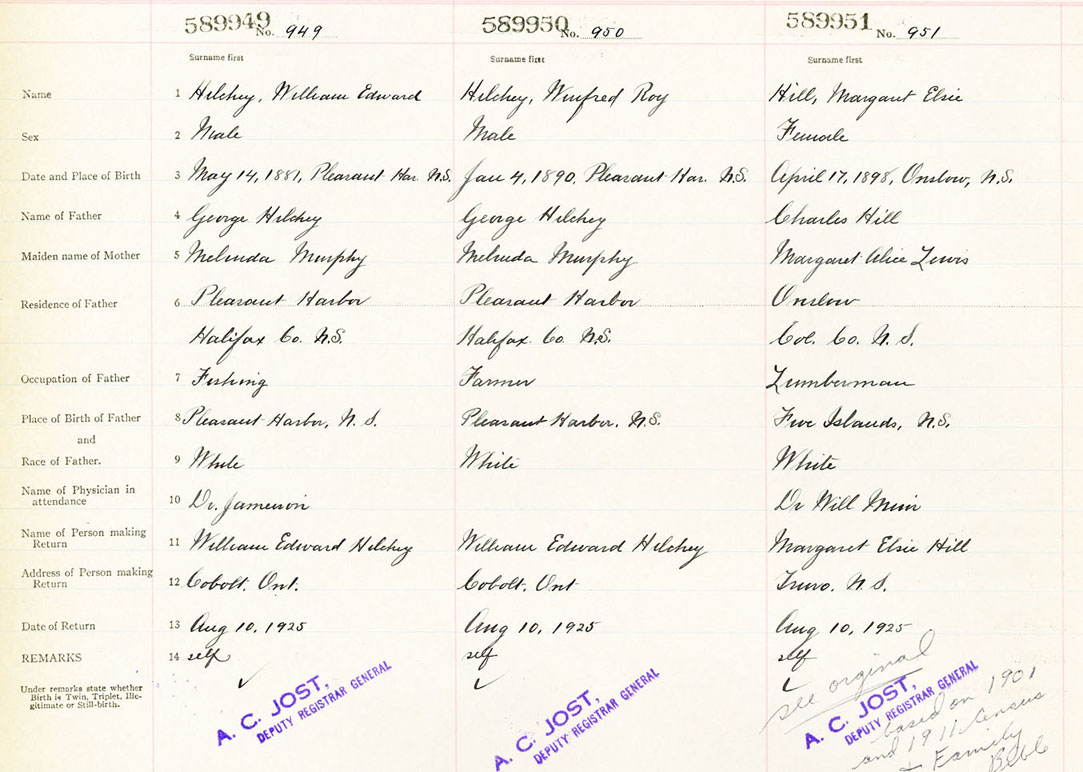 589949 No. 949 589950 No. 950 589951 No. 951
Surname first Surname first Surname first
Name 1 Hilchey, William Edward Hilchey, Winfred Roy Hill, Margaret Elsie
Sex 2 Male Male Female
Date and Place of Birth 3 May 14, 1881, Pleasant Har. N.S. Jan 4, 1890, Pleasant Har. N.S. April 17, 1898, Onslow, N.S.
Name of Father 4 George Hilchey George Hilchey Charles Hill
Maiden name of Mother 5 Melinda Murphy Melinda Murphy Margaret Alice Lewis
Residence of Father 6 Pleasant Harbor Pleasant Harbor Onslow
Halifax Co. N.S. Halifax Co. N.S. Col. Co. N.S.
Occupation of Father 7 Fishing Farmer Lumberman
Place of Birth of Father 8 Pleasant Harbor, N.S. Pleasant Harbor, N.S. Five Islands, N.S.
and
Race of Father. 9 White White White
Name of Physician in
attendance 10 Dr. Jameson Dr Will Muir
Name of Person making
Return 11 William Edward Hilchey William Edward Hilchey Margaret Elsie Hill
Address of Person making
Return 12 Cobolt. Ont. Cobolt. Ont Truro. N.S.
Date of Return 13 Aug 10, 1925 Aug 10, 1925 Aug 10, 1925
REMARKS 14 self self self
Under remarks state whether
Birth is Twin, Triplet, Ille-
gitimate or Still-birth.
A. C. JOST,
DEPUTY REGISTRAR GENERAL
A. C. JOST,
DEPUTY REGISTRAR GENERAL
A. C. JOST,
DEPUTY REGISTRAR GENERAL
see orginal
based on 1901
and 1911 Census
+ Family
Bible